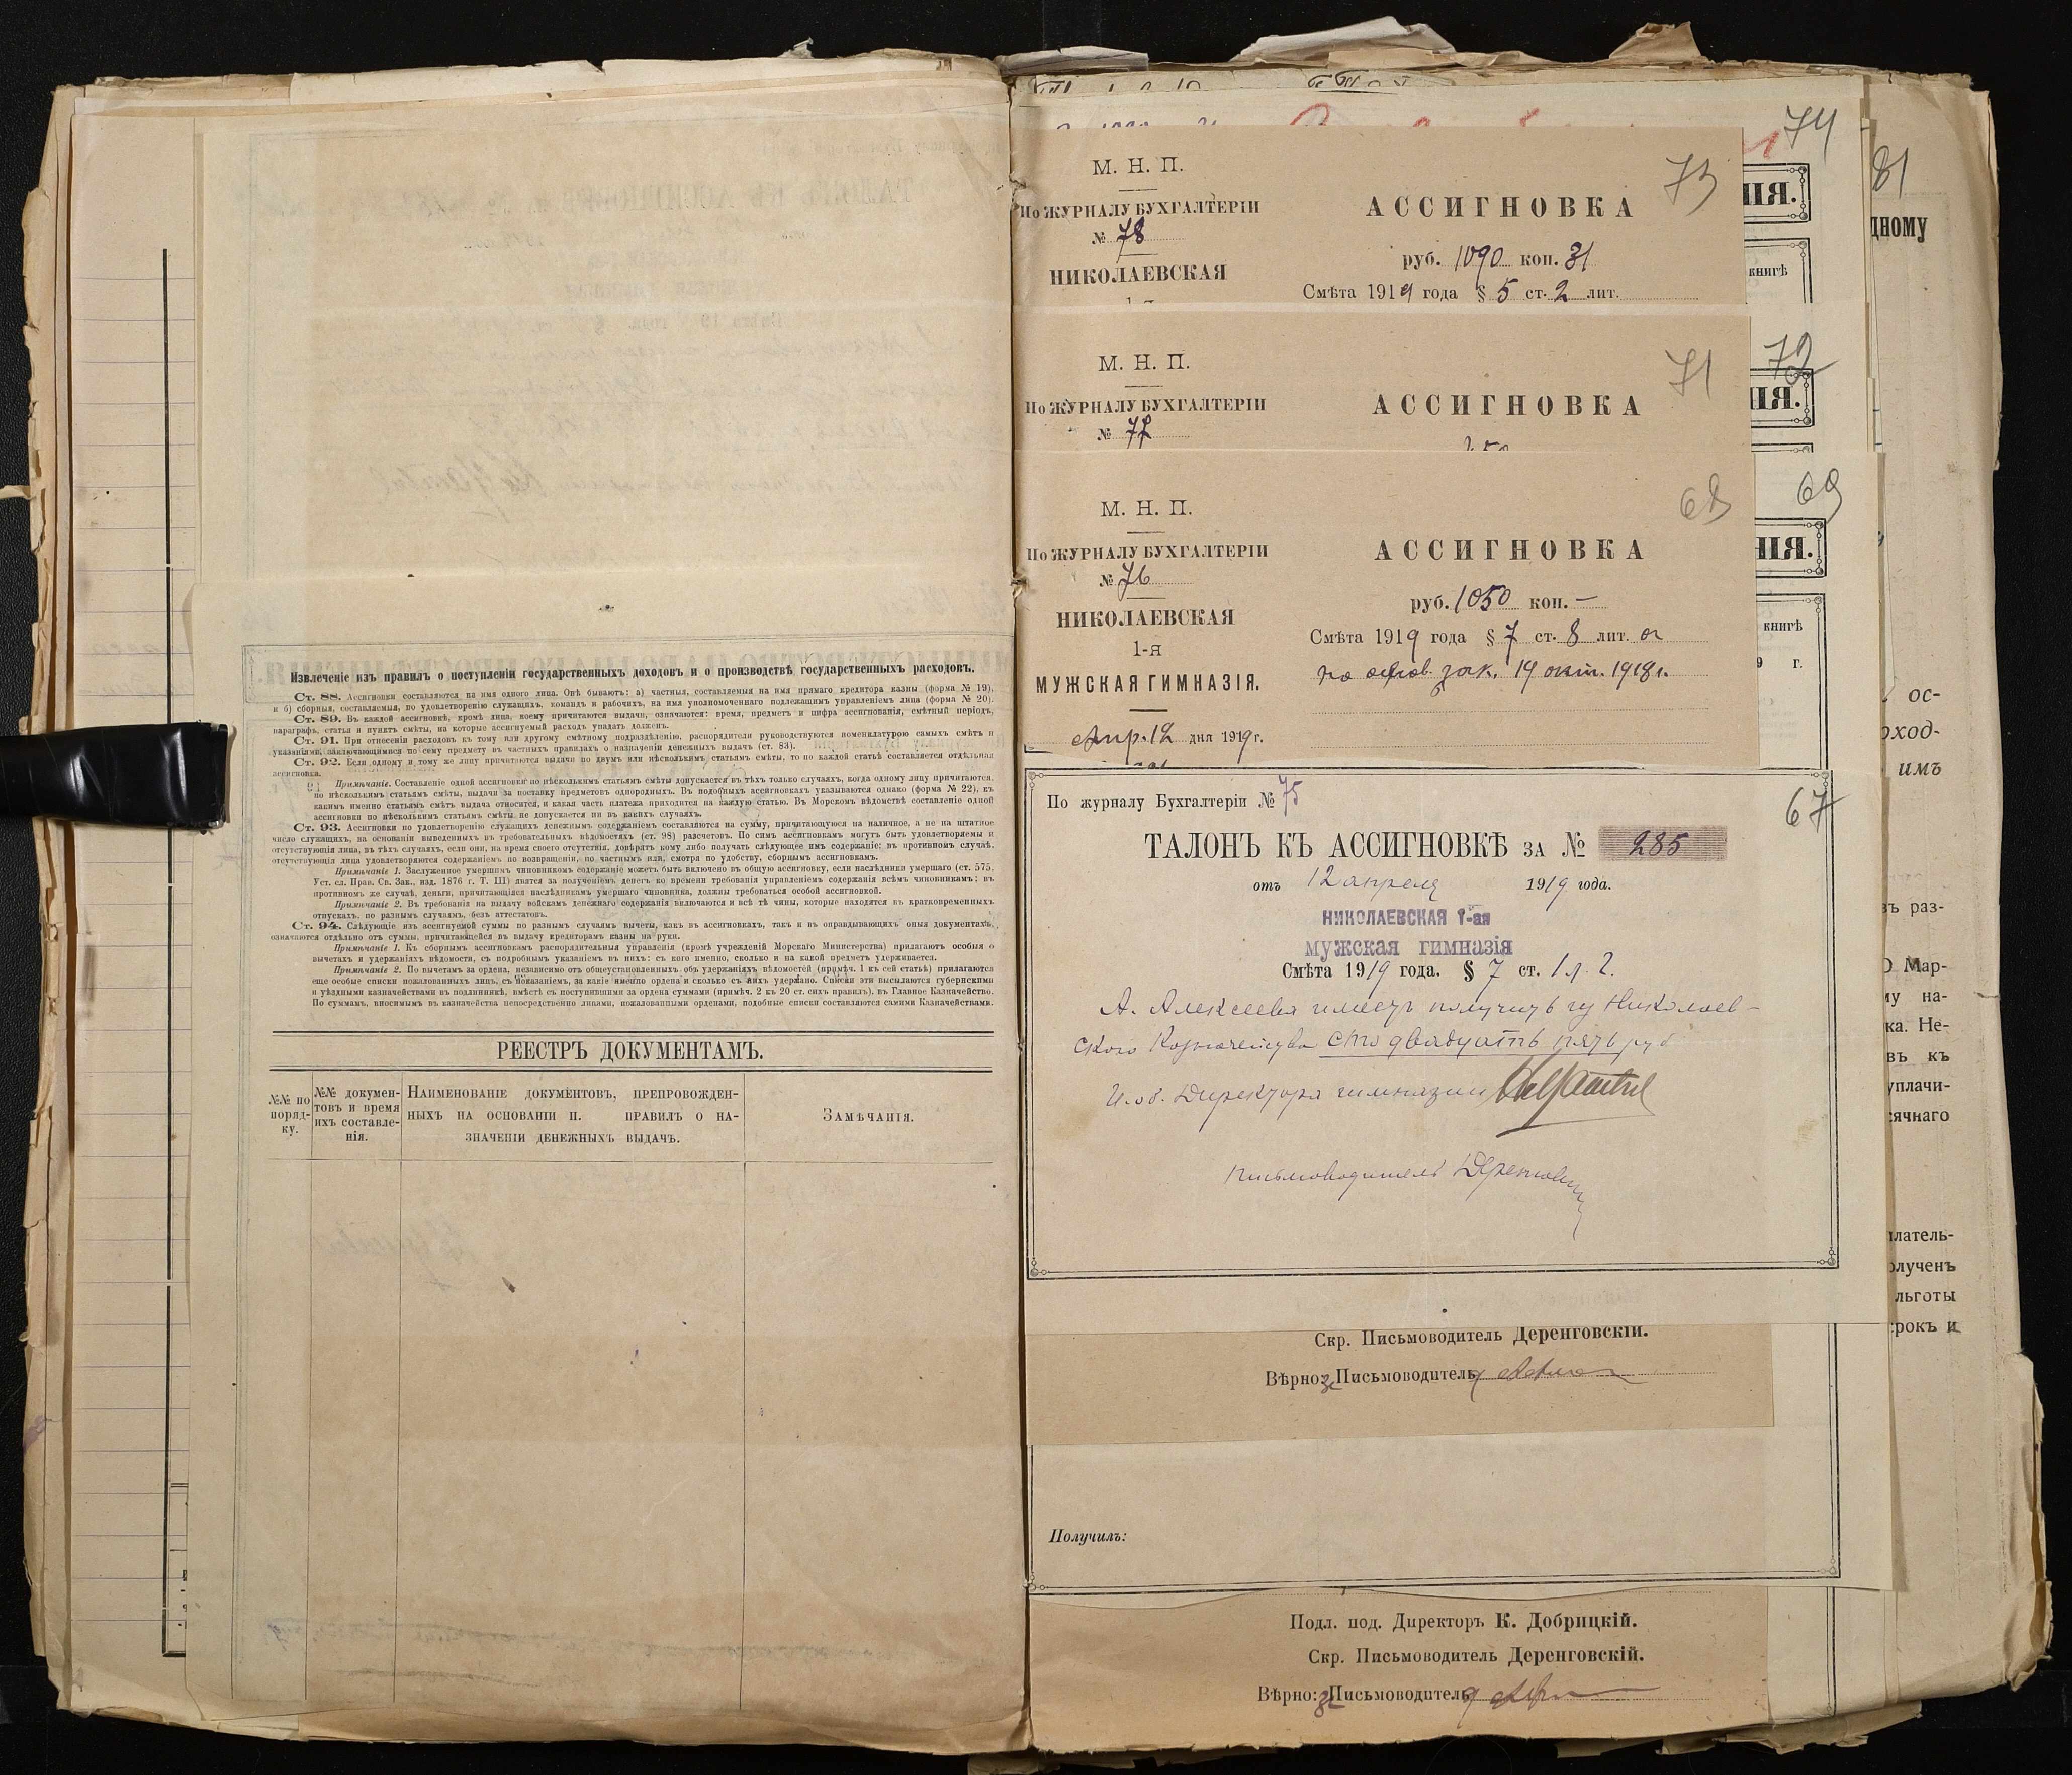 Извлеченіе изъ правилъ о поступленіи государственныхъ доходовъ и о производствѣ государственныхъ расходовъ.
Ст. 88. Ассигновки составляются на имя одного лица. Онѣ бываютъ: а) частныя, составляемыя на имя прямаго кредитора казны (форма № 19),
и б) сборныя, составляемыя, по удовлетворенію служащихъ, командъ и рабочихъ, на имя уполномоченнаго подлежащимъ управленіемъ лица (форма № 20).
Ст. 89. Въ каждой ассигновкѣ, кромѣ лица, коему причитаются выдачи, означаются: время, предметъ и цифра ассигнованія, смѣтный періодъ,
параграфъ, статья и пунктъ смѣты, на которые ассигнуемый расходъ упадать долженъ.
Ст. 91. При отнесеніи расходовъ къ тому или другому смѣтному подраздѣленію, распорядители руководствуются номенклатурою самыхъ смѣтъ и
указаніями, заключающимися по сему предмету въ частныхъ правилахъ о назначеніи денежныхъ выдачъ (ст. 83).
Ст. 92. Если одному и тому же лицу причитаются выдачи по двумъ или нѣсколькимъ статьямъ смѣты, то по каждой статьѣ составляется отдѣльная
ассигновка.
Примѣчаніе. Составленіе одной ассигновки по нѣсколькимъ статьямъ смѣты допускается въ тѣхъ только случаяхъ, когда одному лицу причитаются,
по нѣсколькимъ статьямъ смѣты, выдачи за поставку предметовъ однородныхъ. Въ подобныхъ ассигновкахъ указываются однако (форма № 22), къ
какимъ именно статьямъ смѣтъ выдача относится, и какая часть платежа приходится на каждую статью. Въ Морскомъ вѣдомствѣ составленіе одной
ассигновки по нѣсколькимъ статьямъ смѣты не допускается ни въ какихъ случаяхъ.
Ст. 93. Ассигновки по удовлетворенію служащихъ денежнымъ содержаніемъ составляются на сумму, причитающуюся на наличное, а не на штатное
число служащихъ, на основаніи выведенныхъ въ требовательныхъ вѣдомостяхъ (ст. 98) разсчетовъ. По симъ ассигновкамъ могутъ быть удовлетворяемы и
отсутствующія лица, въ тѣхъ случаяхъ, если они, на время своего отсутствія, довѣрятъ кому либо получать слѣдующее имъ содержаніе; въ противномъ случаѣ,
отсутствующія лица удовлетворяются содержаніемъ по возвращеніи, по частнымъ или, смотря по удобству, сборнымъ ассигновкамъ.
Примѣчаніе 1. Заслуженное умершимъ чиновникомъ содержаніе можетъ быть включено въ общую ассигновку, если наслѣдники умершаго (ст. 575,
Уст. сл. Прав. Св. Зак., изд. 1876 г. Т. III) явятся за полученіемъ денегъ ко времени требованія управленіемъ содержанія всѣмъ чиновникамъ; въ
противномъ же случаѣ, деньги, причитающіяся наслѣдникамъ умершаго чиновника, должны требоваться особой ассигновкой.
Примѣчаніе 2. Въ требованія на выдачу войскамъ денежнаго содержанія включаются и всѣ тѣ чины, которые находятся въ кратковременныхъ
отпускахъ, по разнымъ случаямъ, безъ аттестатовъ.
Ст. 94. Слѣдующіе изъ ассигнуемой суммы по разнымъ случаямъ вычеты, какъ въ ассигновкахъ, такъ и въ оправдывающихъ оныя документахъ,
означаются отдѣльно отъ суммы, причитающейся въ выдачу кредиторамъ казны на руки.
Примѣчаніе 1. Къ сборнымъ ассигновкамъ распорядительныя управленія (кромѣ учрежденій Морскаго Министерства) прилагаютъ особыя о
вычетахъ и удержаніяхъ вѣдомости, съ подробнымъ указаніемъ въ нихъ: съ кого именно, сколько и на какой предметъ удерживается.
Примѣчаніе 2. По вычетамъ за ордена, независимо отъ общеустановленныхъ объ удержаніяхъ вѣдомостей (примѣч. 1 къ сей статьѣ) прилагаются
еще особые списки пожалованныхъ лицъ, съ показаніемъ, за какіе именно ордена и сколько съ нихъ удержано. Списки эти высылаются губернскими
и уѣздными казначействами въ подлинникѣ, вмѣстѣ съ поступившими за ордена суммами (примѣч. 2 къ 20 ст. сихъ правилъ), въ Главное Казначейство.
По суммамъ, вносимымъ въ казначейства непосредственно лицами, пожалованными орденами, подобные списки составляются самими Казначействами.
РЕЕСТРЪ ДОКУМЕНТАМЪ.
№№ по поряд-ку.
№№ докумен-товъ и время ихъ составле-нія.
Наименованіе документовъ, препровожден-
ныхъ на основаніи п. правилъ о на-
значеніи денежныхъ выдачъ.
Замѣчанія.
74
81
73
М. Н. П.
По ЖУРНАЛУ БУХГАЛТЕРІИ
№ 78
НИКОЛАЕВСКАЯ
АССИГНОВКА
руб. 1090 коп. 31
Смѣта 1919 года § 5 ст. 2 лит.
ІЯ.
дному
книгѣ
72
71
М. Н. П.
По ЖУРНАЛУ БУХГАЛТЕРІИ
№ 77
АССИГНОВКА
ІЯ.
69
68
М. Н. П.
По ЖУРНАЛУ БУХГАЛТЕРІИ
№ 76
НИКОЛАЕВСКАЯ
1-я
МУЖСКАЯ ГИМНАЗІЯ.
Апр. 12 дня 1919 г.
АССИГНОВКА
руб. 1050 коп. —
Смѣта 1919 года § 7 ст. 8 лит. а
по основ. зак. 19 окт. 1918 г.
НІЯ.
книгѣ
9 г.
67
По журналу Бухгалтеріи № 75
ТАЛОНЪ КЪ АССИГНОВКѢ ЗА № 285
отъ 12 апреля 1919 года.
НИКОЛАЕВСКАЯ 1-ая
мужская гимназія
Смѣта 1919 года. § 7 ст. 1 л. 2.
А. Алексеева имеет получить из Николаев-
ского Казначейства сто двадцать пять руб
И. об. Директора гимназии
Письмоводитель Деренговский
Скр. Письмоводитель Деренговскій.
Вѣрно: Письмоводитель
Получилъ:
Подл. под. Директоръ К. Добрицкій.
Скр. Письмоводитель Деренговскій.
Вѣрно: Письмоводитель
ос-
оход-
имъ
въ раз-
О Мар-
му на-
ка. Не-
въ къ
уплачи-
сячнаго
платель-
олученъ
льготы
срокъ и